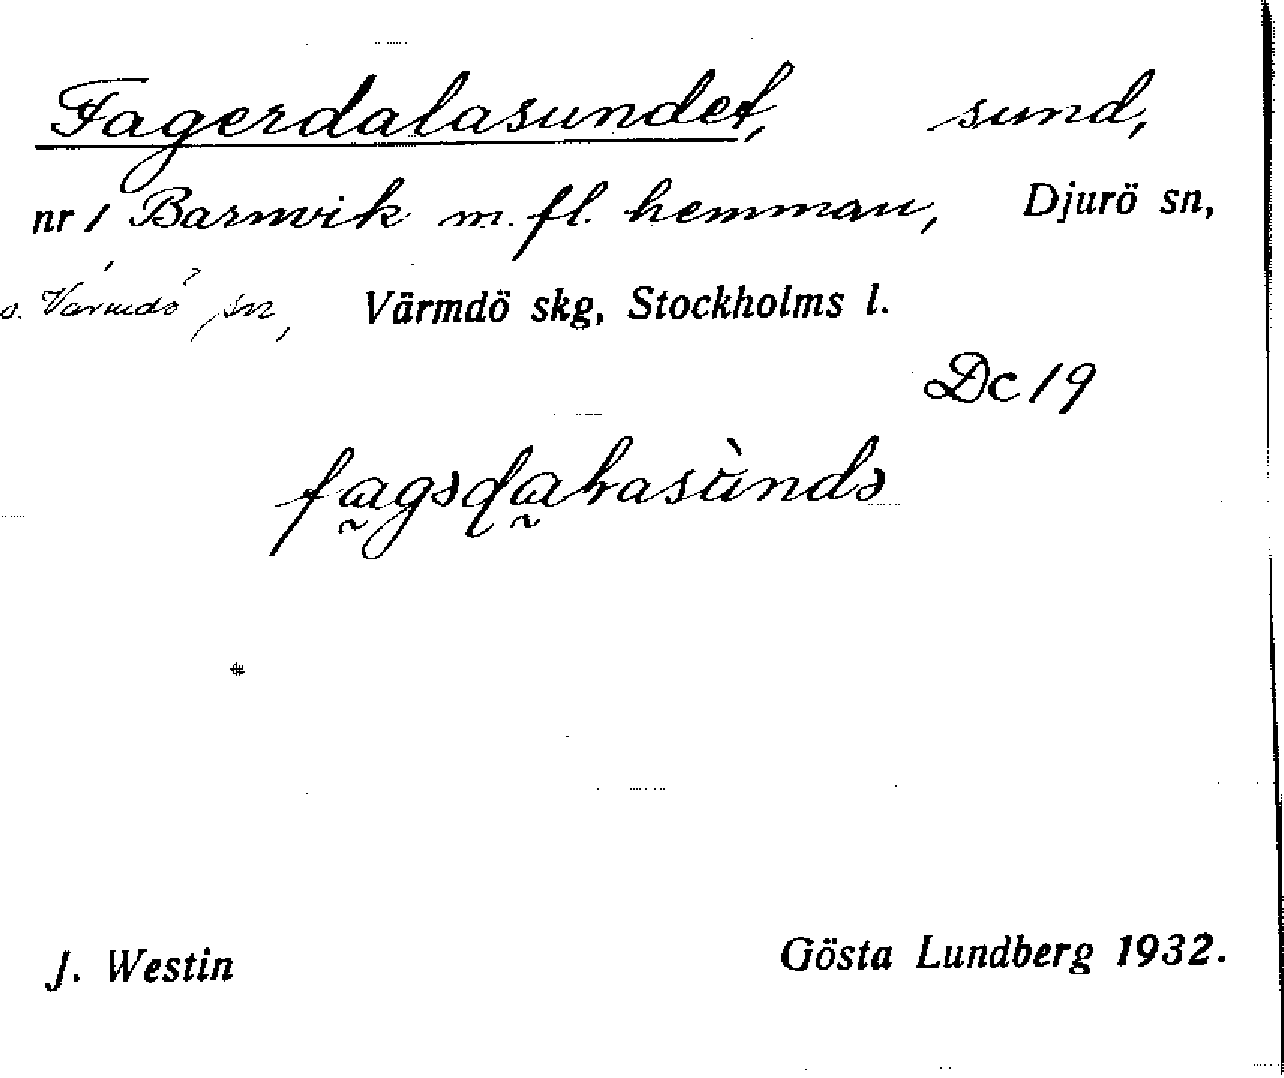 Fagerdalasundet, sund,
nr 1 Barnvik m. fl. hemman, Djurö sn,
o. Värmdö sn, Värmdö skg, Stockholms l.
Dc 19
J. Westin Gösta Lundberg 1932.